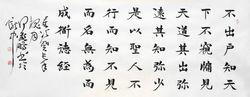 不出戶知天
下不窺牖見
天道其出彌
遠其知彌少
是以聖人不
行而知不見
而名無為而
成道德經